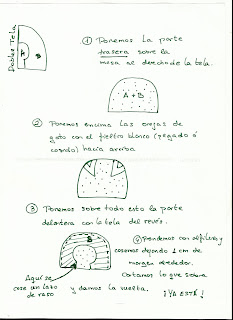 Doblez Tela
A
B
① Ponemos la parte
trasera sobre la
mesa al derecho de la tela.
A + B
② Ponemos encima las orejas de
gato con el fieltro blanco (pegado ó
cosido) hacia arriba
③ Ponemos sobre todo esto la parte
delantera con la tela del revés.
B
④ Prendemos con alfileres y
cosemos dejando 1 cm de
margen alrededor.
Cortamos lo que sobra
y damos la vuelta.
¡YA ESTÁ!
Aquí se
cose un lazo
de raso